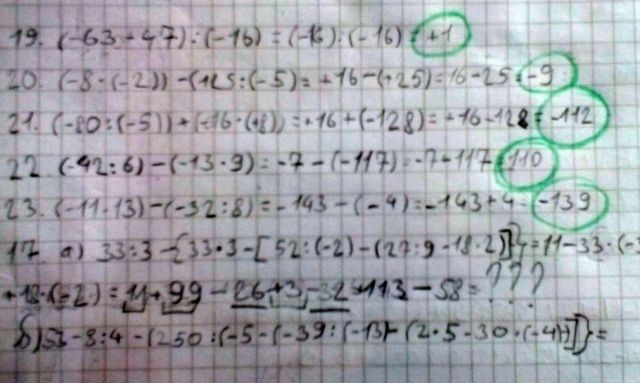 19. (-63+47):(-16) = (-16):(-16) = +1
20. (-8·(-2)) -(125:(-5)= +16-(+25)=16-25=-9
21. (-80:(-5))+(-16·(+8))=+16+(-128)=+16-128=-112
22. (-42:6)-(-13·9)=-7-(-117)=-7+117=110
23. (-11·13)-(-32:8)=-143-(-4)=-143+4=-139
17. а) 33:3-{33·3-[52:(-2)-(27:9-18·2)]}=11-33·(-3
+18·(-2)=11+99-26+3-32=113-58=???
б) 53-8:4-(250:(-5-(-39:(-13)-(2·5-30·(-4))]}=